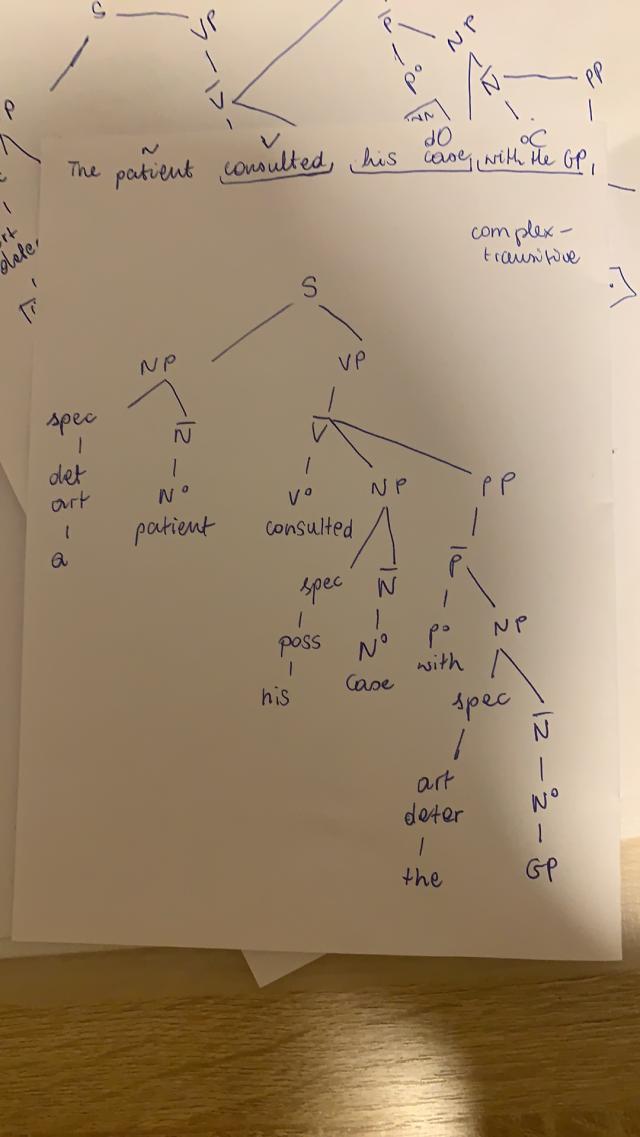 S VP
V̅
P̅ NP
P° N̅ PP
P
V dO oC
N
The patient consulted, his case, with the GP,
complex-
transitive
S
NP VP
spec N̅ V̅
det N° V° NP PP
art patient consulted P̅
a spec N̅
poss N° P° NP
his Case with spec N̅
art N°
deter
the GP